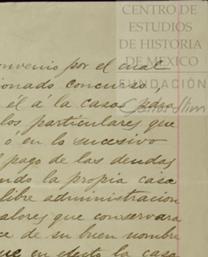 CENTRO DE
ESTUDIOS
DE HISTORIA
DE MÉXICO
FUNDACIÓN
Carlos Slim
convenio por el cual
ionado concurso,
él a la casa para
los particulares que
o en lo sucesivo
pago de las deudas
ndo la propia casa
libre administracion
alores que conservara
ce de su buen nombre
que en efecto la casa